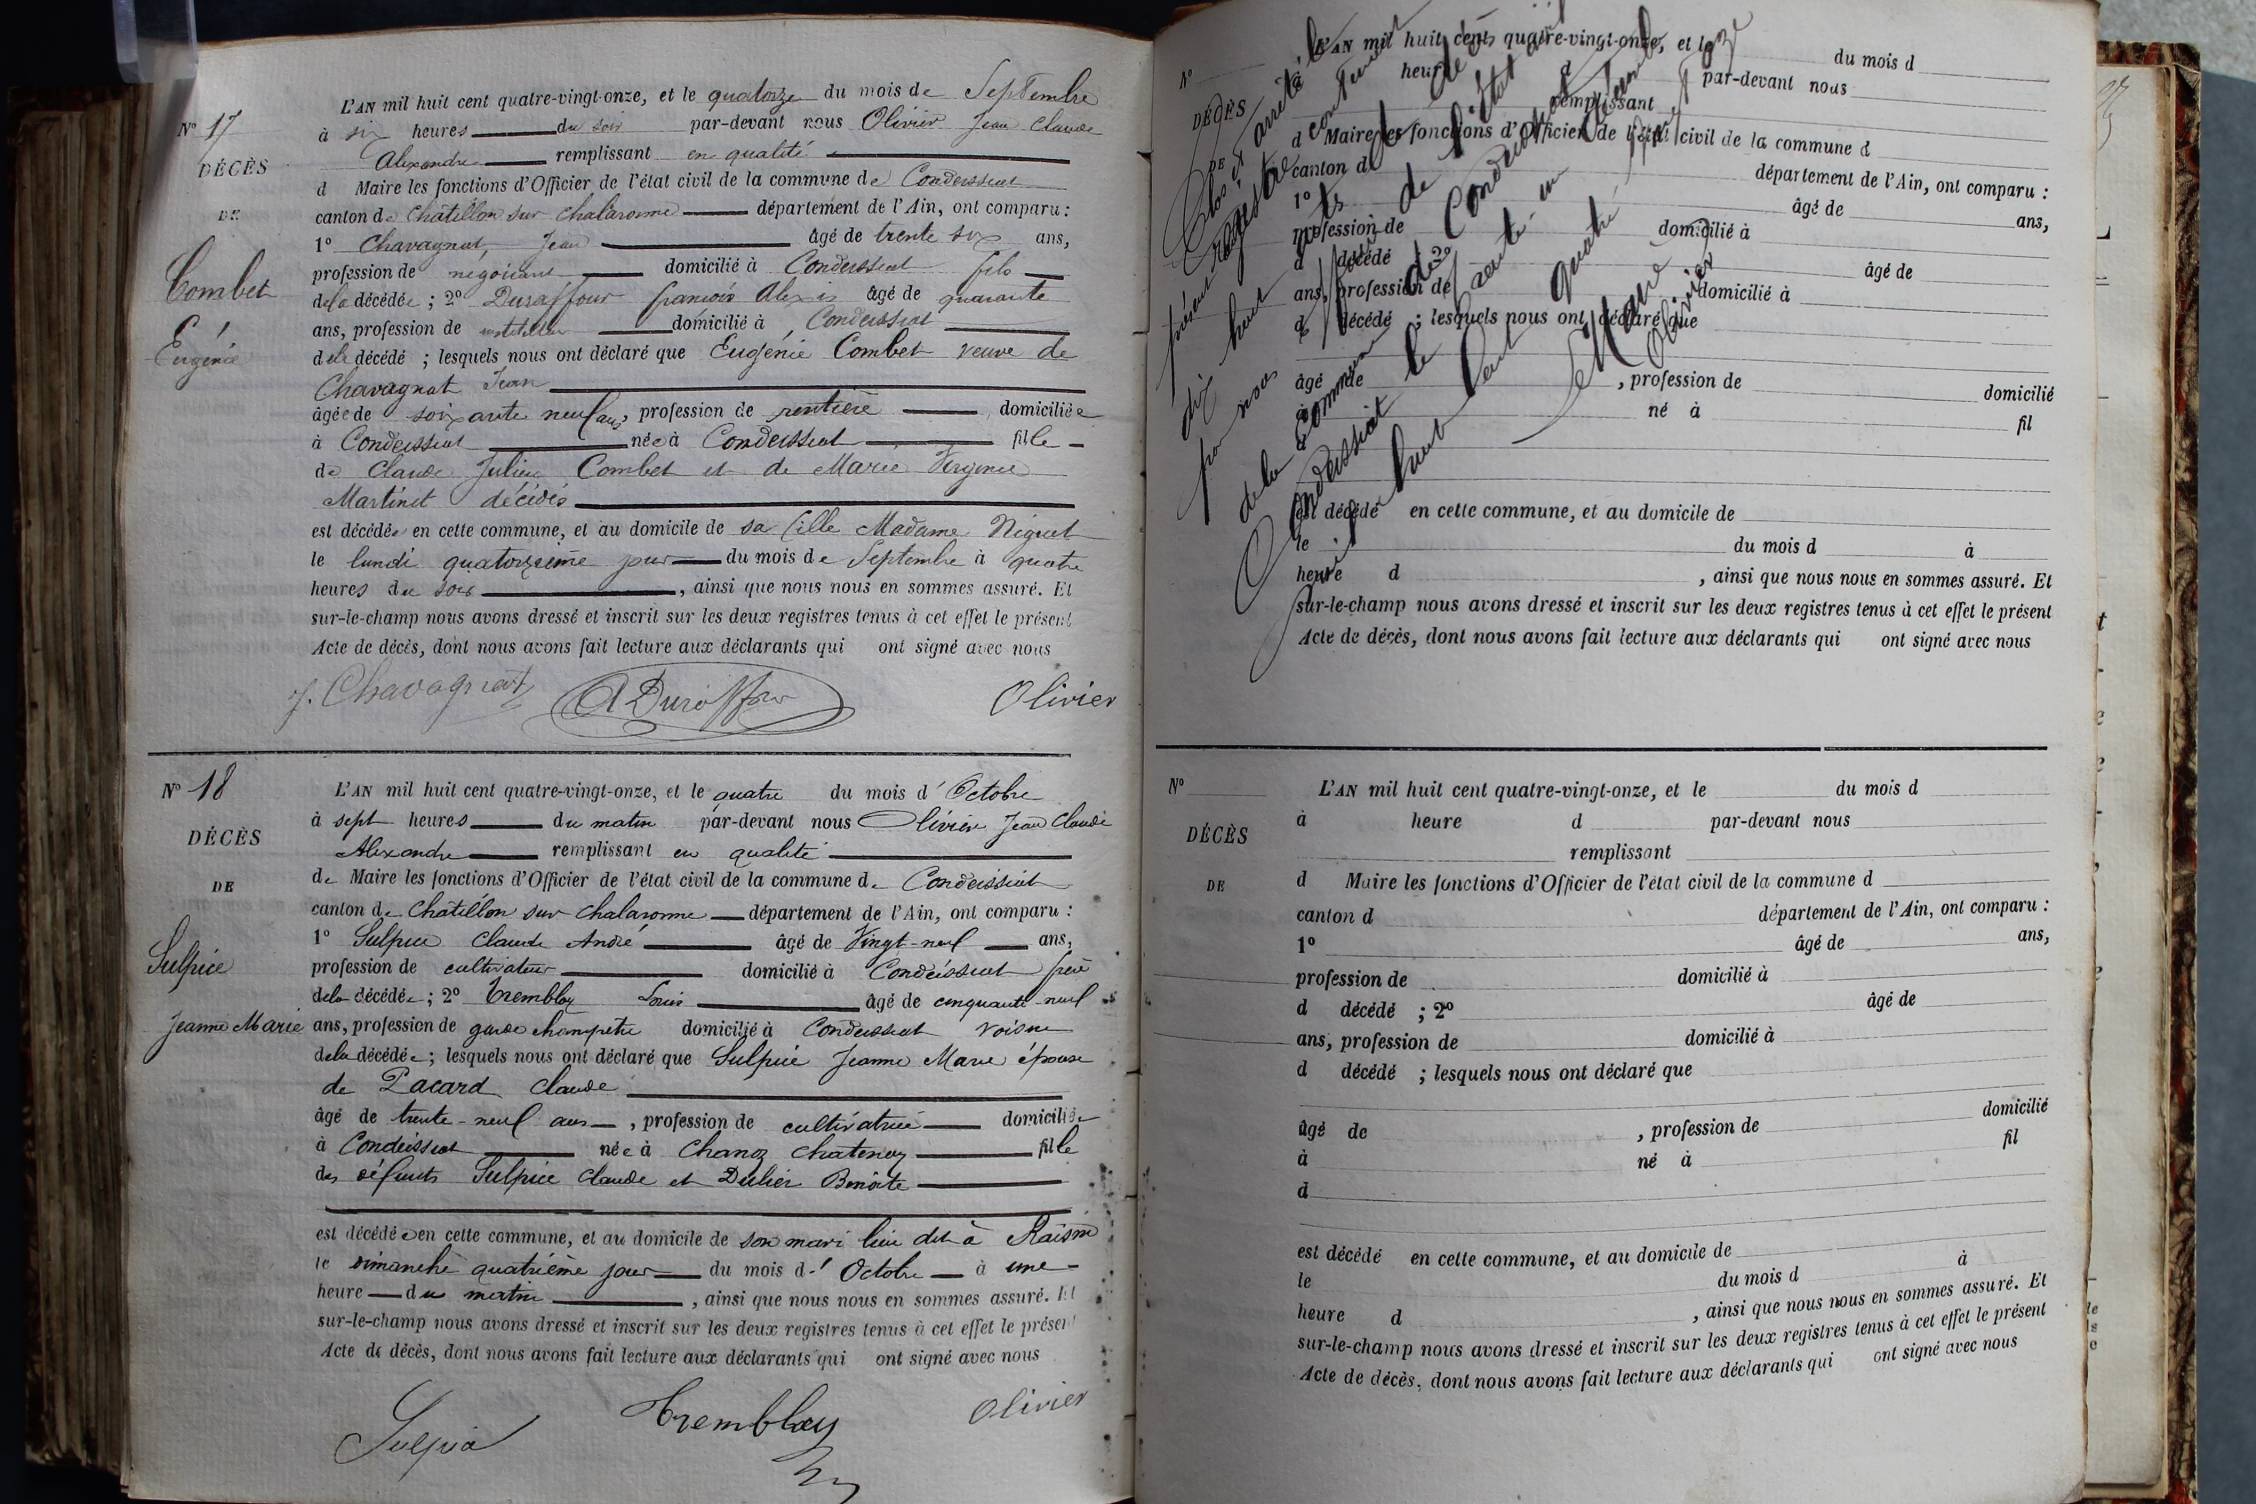 N° 17
DÉCÈS
DE
Combet
Eugénie
L'AN mil huit cent quatre-vingt-onze, et le quatorze du mois de Septembre
à six heures du soir par-devant nous Olivier Jean Claude
Alexandre remplissant en qualité
d Maire les fonctions d'Officier de l'état civil de la commune de Condeissiat
canton de Châtillon sur Chalaronne département de l'Ain, ont comparu :
1° Chavagnat, Jean âgé de trente six ans,
profession de négociant domicilié à Condeissiat fils
de la décédée ; 2° Duraffour françois Alexis âgé de quarante
ans, profession de instituteur domicilié à Condeissiat
de la décédé ; lesquels nous ont déclaré que Eugénie Combet veuve de
Chavagnat Jean
âgée de soixante neuf ans, profession de rentière domiciliée
à Condeissiat née à Condeissiat fille
de Claude Julien Combet et de Marie Virginie
Martinet décédés
est décédée en cette commune, et au domicile de sa fille Madame Niguet
le lundi quatorzième jour du mois de Septembre à quatre
heures du soir, ainsi que nous nous en sommes assuré. Et
sur-le-champ nous avons dressé et inscrit sur les deux registres tenus à cet effet le présent
Acte de décès, dont nous avons fait lecture aux déclarants qui ont signé avec nous
J. Chavagnat A Duraffour Olivier
N° 18
DÉCÈS
DE
Sulpice
Jeanne Marie
L'AN mil huit cent quatre-vingt-onze, et le quatre du mois d' Octobre
à sept heures du matin par-devant nous Olivier Jean Claude
Alexandre remplissant en qualité
de Maire les fonctions d'Officier de l'état civil de la commune de Condeissiat
canton de Châtillon sur Chalaronne département de l'Ain, ont comparu :
1° Sulpice Claude André âgé de Vingt-neuf ans,
profession de cultivateur domicilié à Condeissiat frère
de la décédée ; 2° Tremblay Louis âgé de cinquante-neuf
ans, profession de garde champêtre domicilié à Condeissiat voisin
de la décédée ; lesquels nous ont déclaré que Sulpice Jeanne Marie épouse
de Pacard Claude
âgé de trente-neuf ans, profession de cultivatrice domiciliée
à Condeissiat née à Chanoz Chatenay fille
des défunts Sulpice Claude et Dulier Benoite
est décédée en cette commune, et au domicile de son mari lieu dit à
le dimanche quatrième jour du mois d' Octobre à une
heure du matin, ainsi que nous nous en sommes assuré. Et
sur-le-champ nous avons dressé et inscrit sur les deux registres tenus à cet effet le présent
Acte de décès, dont nous avons fait lecture aux déclarants qui ont signé avec nous
Sulpice Tremblay Olivier
N°
DÉCÈS
DE
L'AN mil huit cent quatre-vingt-onze, et le du mois d
à heure d par-devant nous
remplissant
d Maire les fonctions d'Officier de l'état civil de la commune d
canton d département de l'Ain, ont comparu :
1° âgé de ans,
profession de domicilié à
d décédé ; 2° âgé de
ans, profession de domicilié à
d décédé ; lesquels nous ont déclaré que
âgé de , profession de domicilié
à né à fil
d
est décédé en cette commune, et au domicile de
le du mois d à
heure d , ainsi que nous nous en sommes assuré. Et
sur-le-champ nous avons dressé et inscrit sur les deux registres tenus à cet effet le présent
Acte de décès, dont nous avons fait lecture aux déclarants qui ont signé avec nous
Clos et arrêté le
présent registre contenant
dix huit actes de
par nous de l'état civil
de la commune de
Condeissiat le trente-un Décembre
mil huit cent quatre vingt onze
Le Maire
Olivier
N°
DÉCÈS
DE
L'AN mil huit cent quatre-vingt-onze, et le du mois d
à heure d par-devant nous
remplissant
d Maire les fonctions d'Officier de l'état civil de la commune d
canton d département de l'Ain, ont comparu :
1° âgé de ans,
profession de domicilié à
d décédé ; 2° âgé de
ans, profession de domicilié à
d décédé ; lesquels nous ont déclaré que
âgé de , profession de domicilié
à né à fil
d
est décédé en cette commune, et au domicile de
le du mois d à
heure d , ainsi que nous nous en sommes assuré. Et
sur-le-champ nous avons dressé et inscrit sur les deux registres tenus à cet effet le présent
Acte de décès, dont nous avons fait lecture aux déclarants qui ont signé avec nous